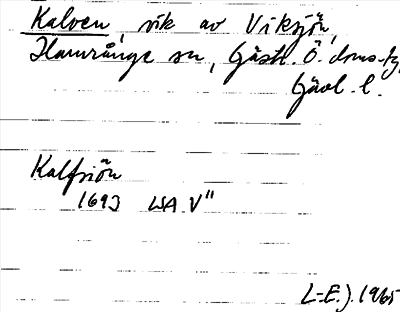 Kalven, vik av Viksjön,
Hamrånge sn, Gästr. Ö. doms-g,
Gävl. l.
Kalfsiön
1693 LSA V"
L-E.J. 1965